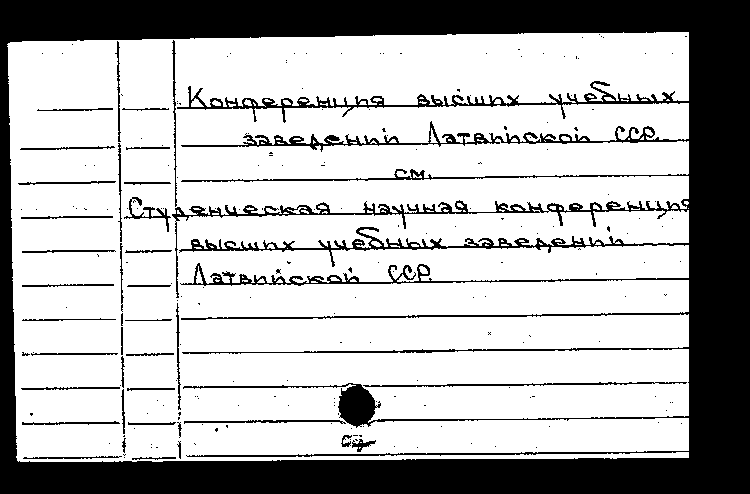 Конференция высших учебных
заведений Латвийской ССР
см.
Студенческая научная конференция
высших учебных заведений
Латвийской ССР.